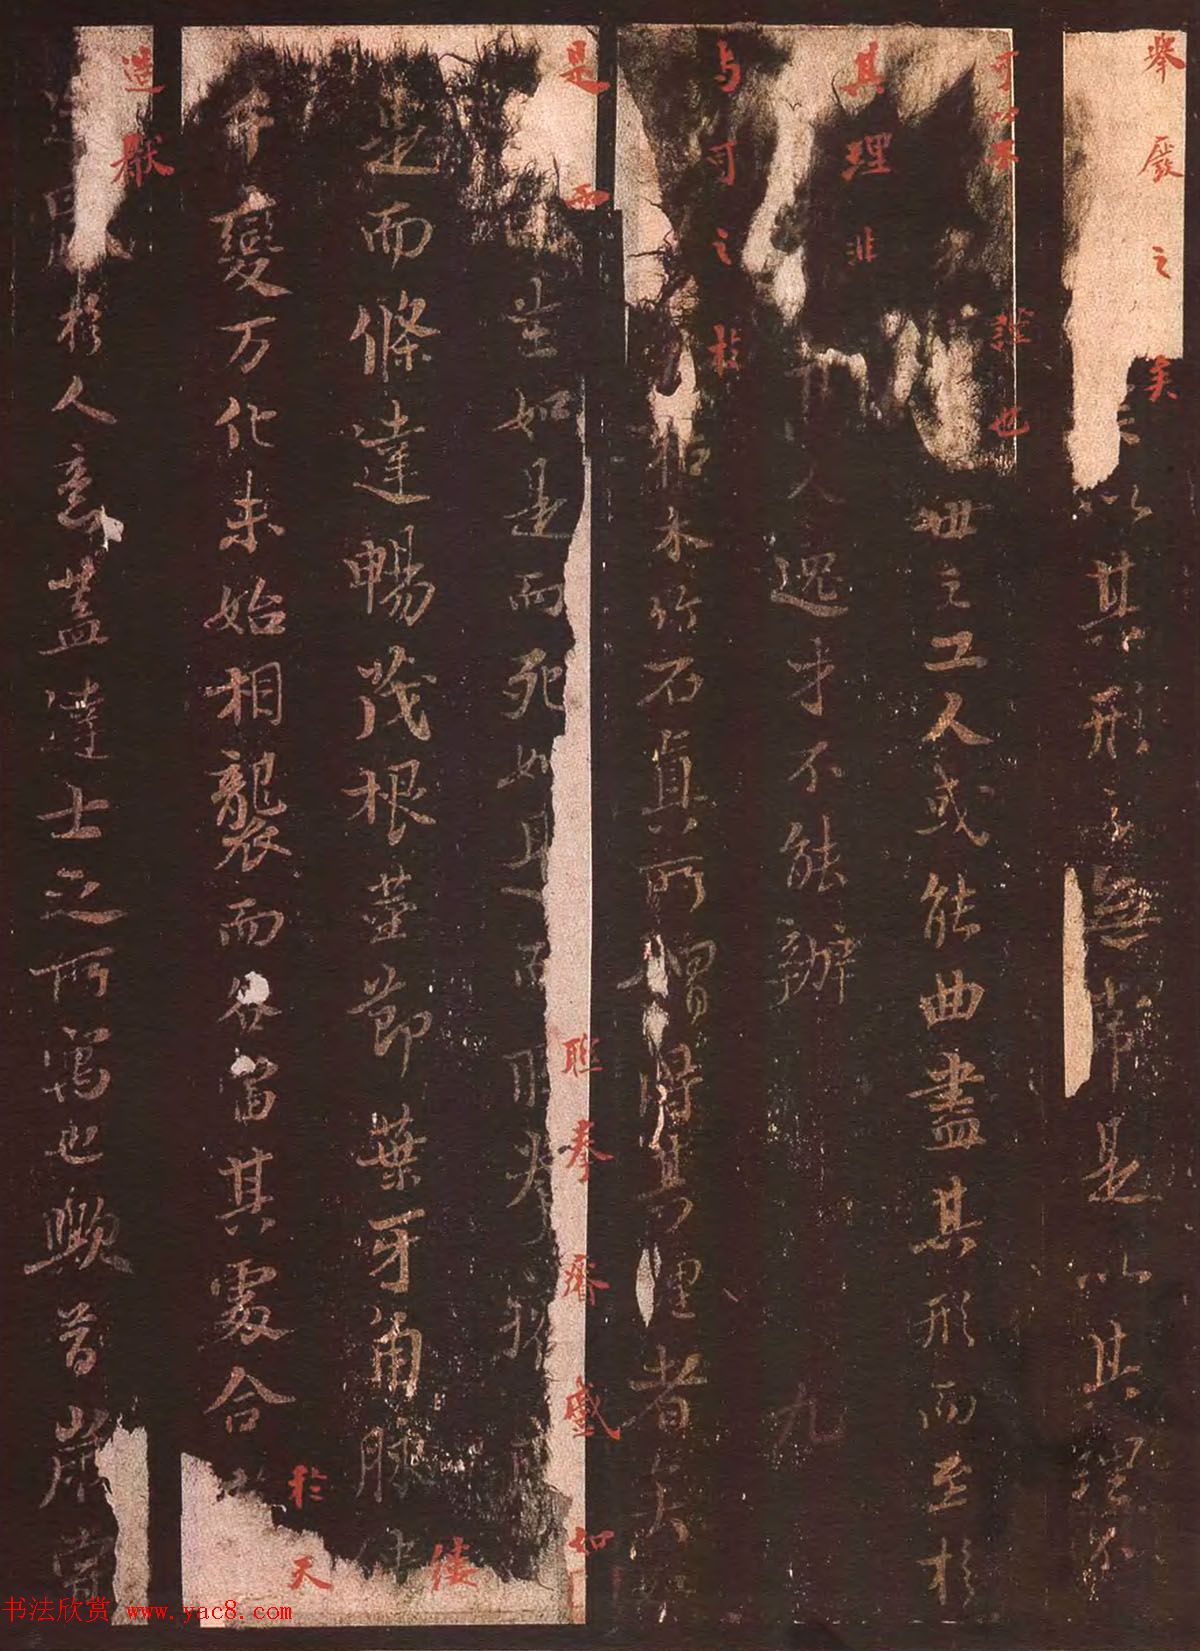 舉廢之矣
以其形之無常是以其理不
可以不謹也
世之工人或能曲盡其形而至於
其理非
人逸才不能辦 九
与可之於
枯木竹石真所謂得其理者矣如
是而
生如是而死如是而攣拳瘠蹙如
是而條達暢茂根莖節葉牙角脉縷
千變万化未始相襲而各當其處合
於天
造厭
造厭於人意蓋達士之所寓也歟昔嵗嘗
书法欣赏 www.yac8.com